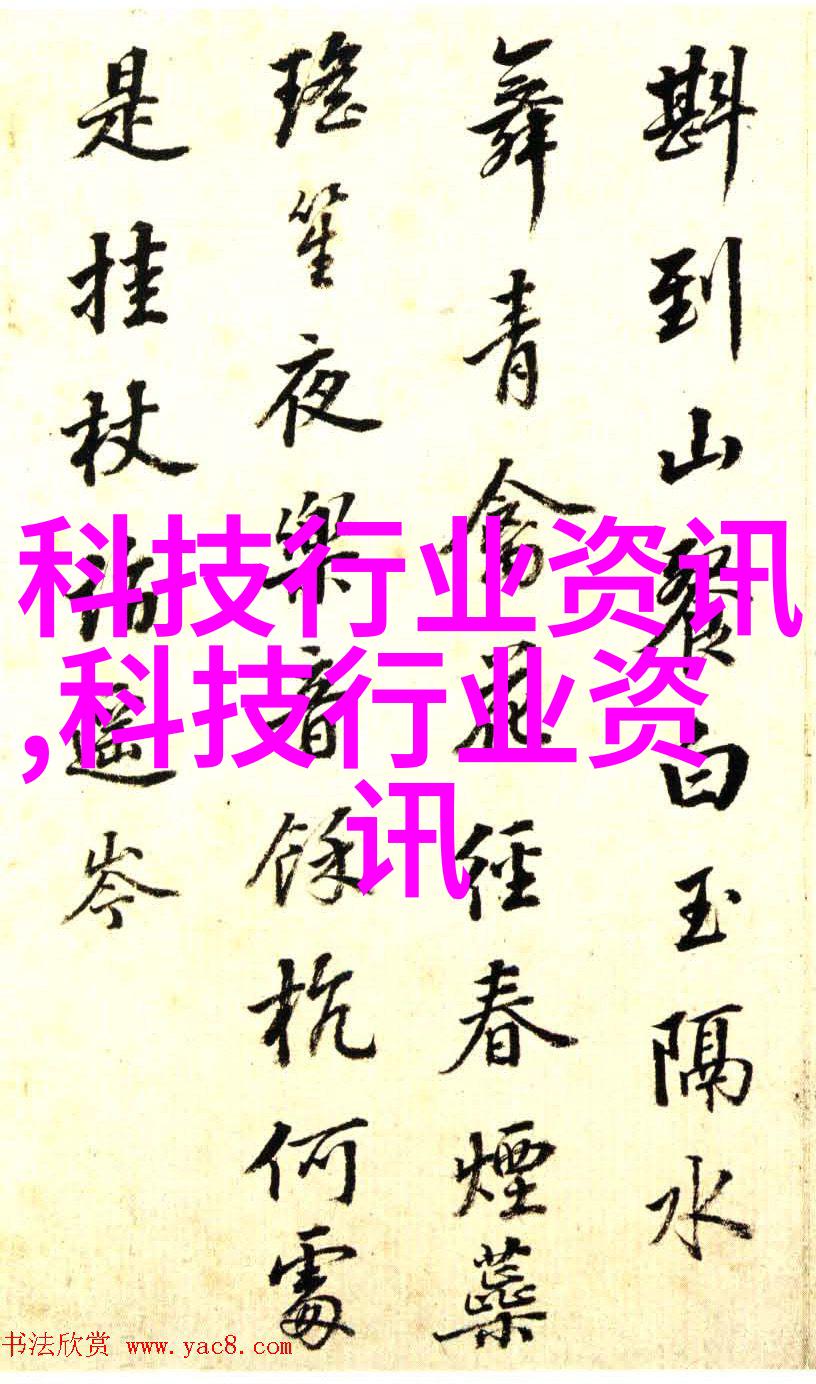 斟到山白玉隔水
舞青禽經春煙蘂
瑤笙夜樂音餘杭何處
是挂杖訪遙岑
科技行业资讯
,科技行业资
讯
书法欣赏 www.yac8.com